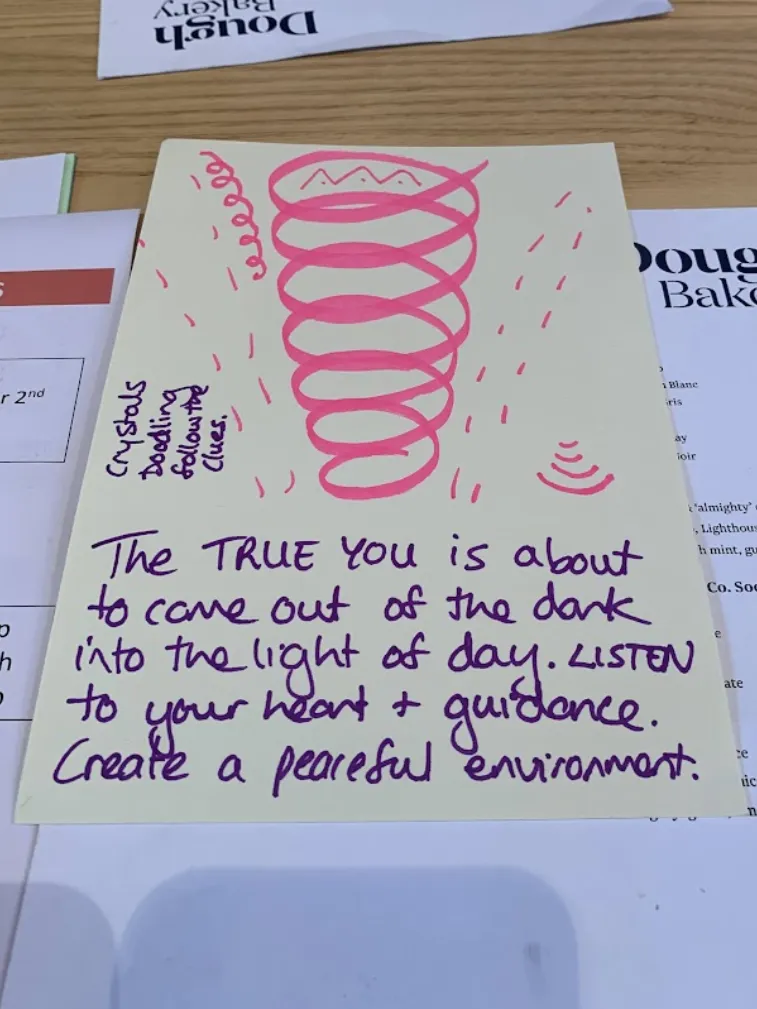 Dough
Bakery
Crystals
Doodling
follow the
clues.
The TRUE YOU is about
to come out of the dark
into the light of day. LISTEN
to your heart + guidance.
Create a peaceful environment.
S
r 2nd
Doug
Bake
Blanc
ris
ay
oir
'almighty'
, Lighthou
h mint, gu
Co. Soc
e
ate
ce
uic